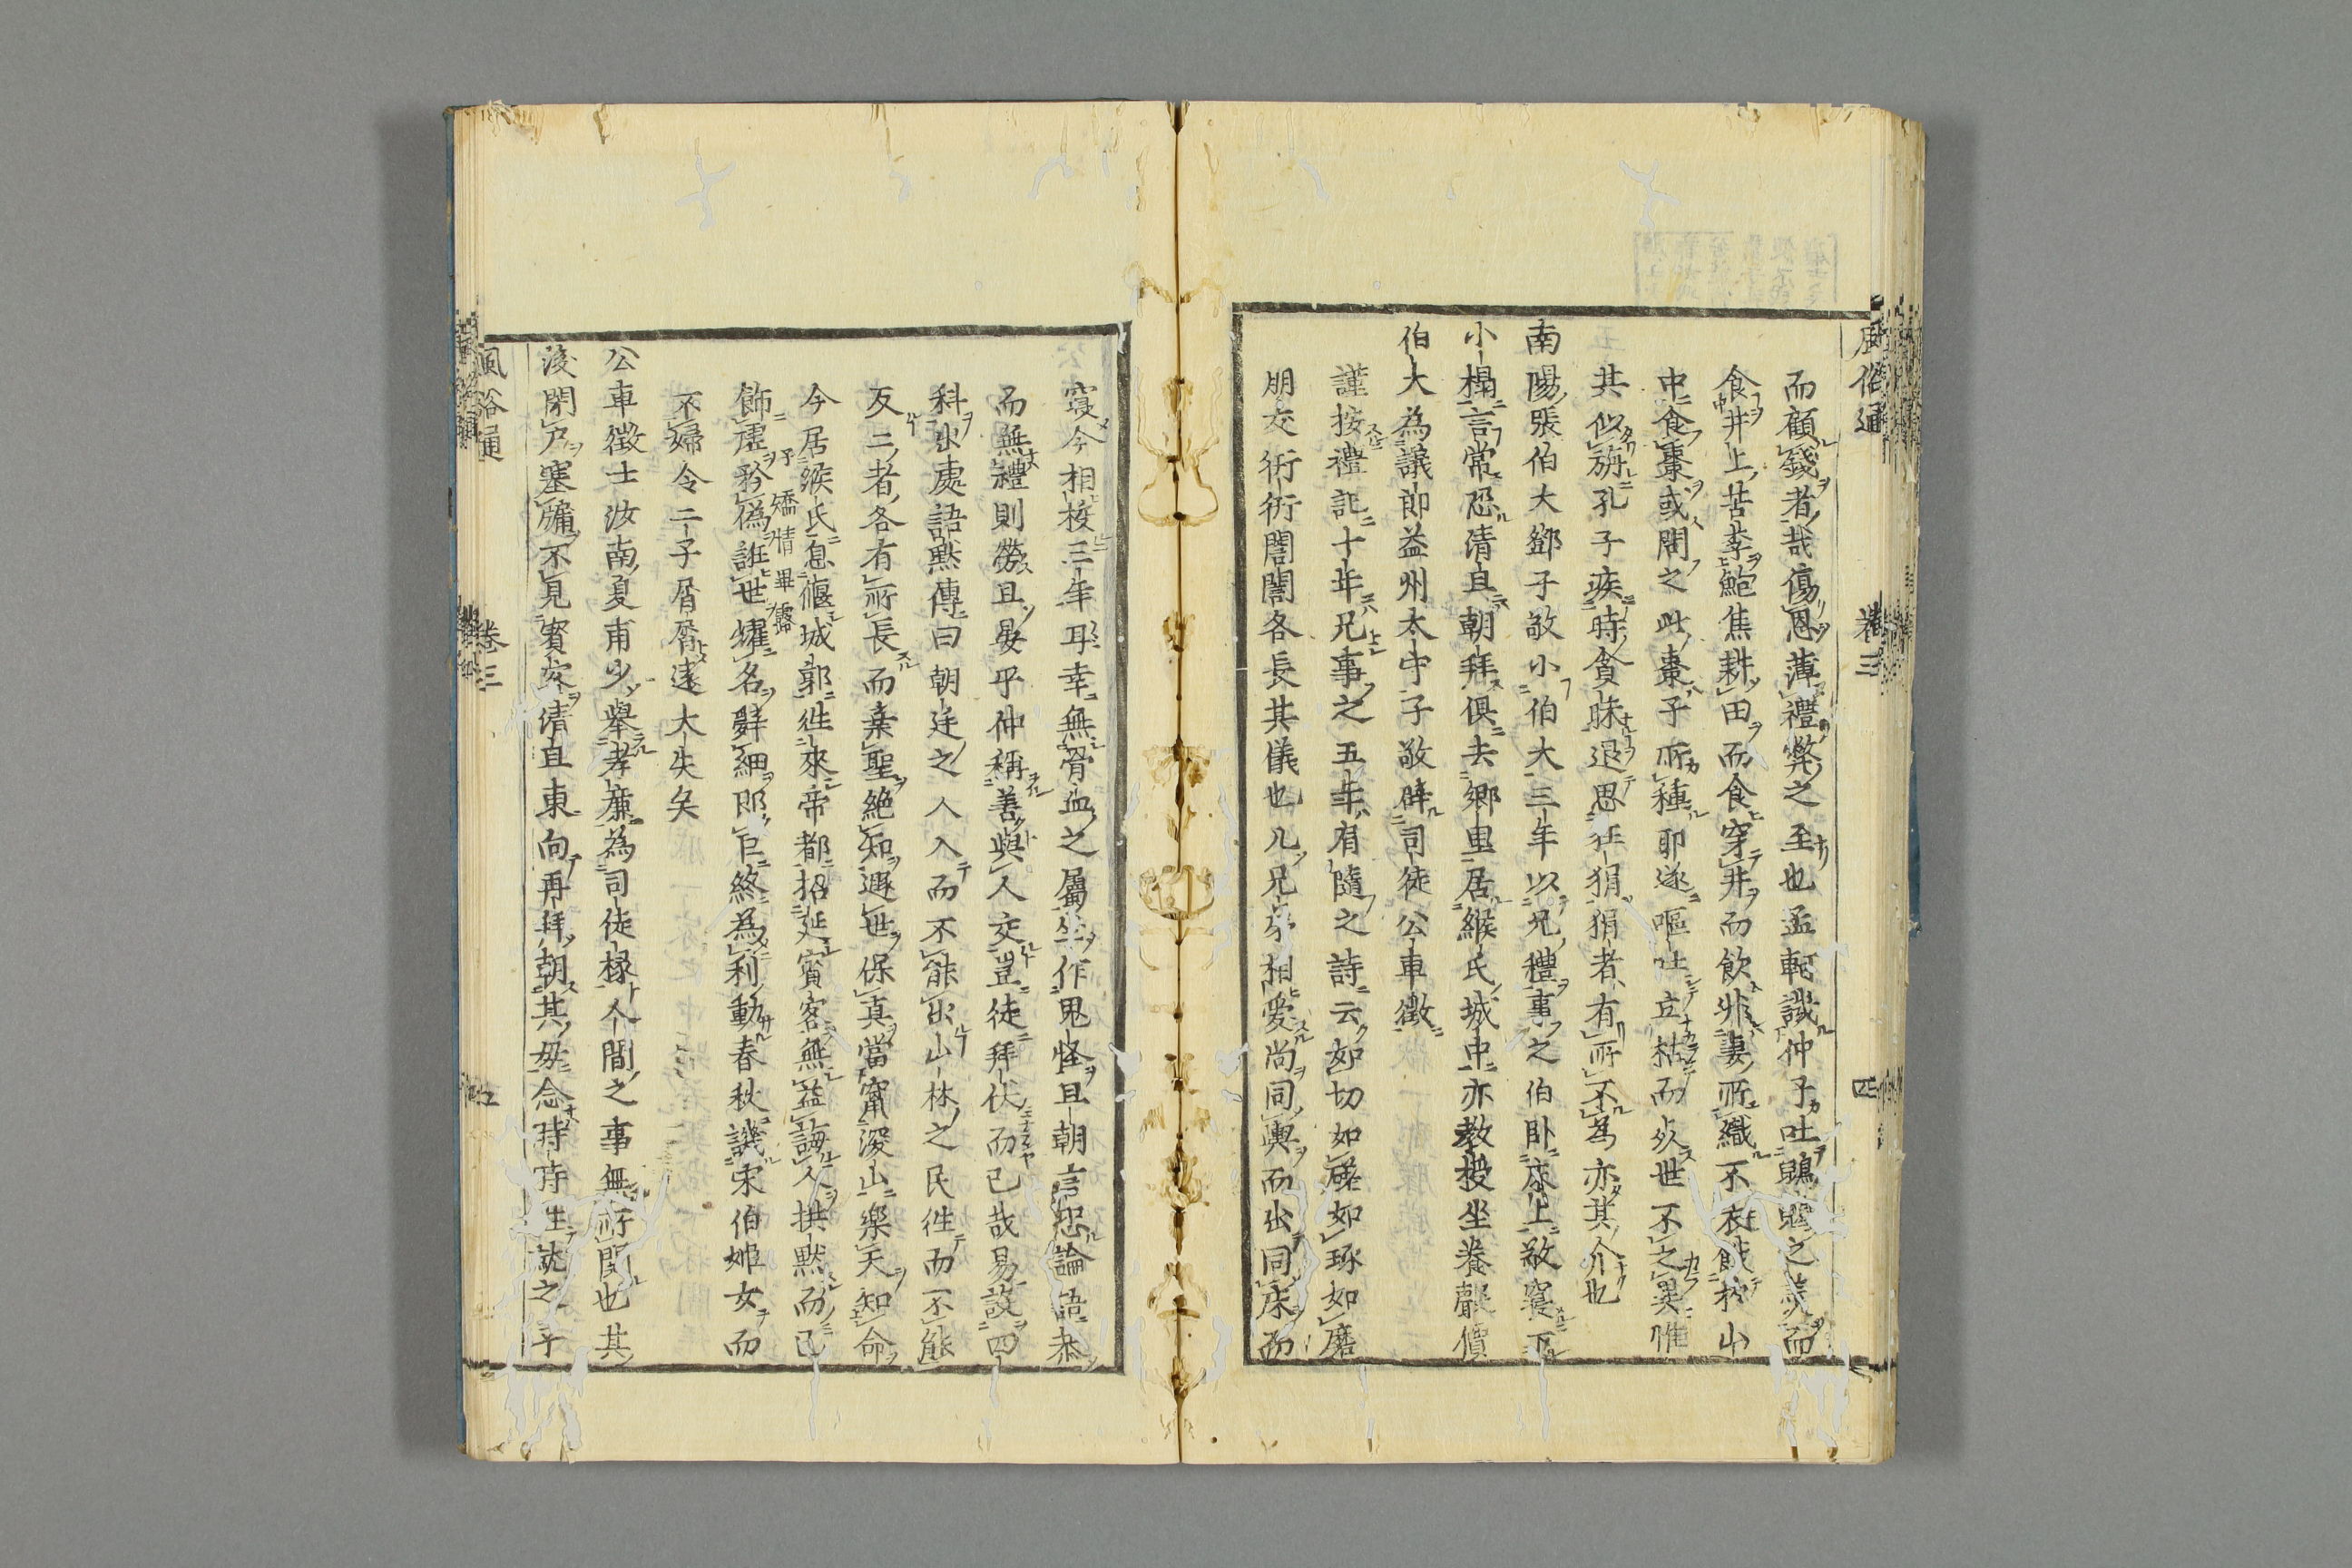 風俗通 卷三 四
而顧錢者哉傷恩薄禮弊之至也孟軻譏仲子吐鶂鶂之羮而
食井上苦李鮑焦耕田而食穿井而飲非妻所織不衣餓於山
中食棗或問之此棗子所種耶遂嘔吐立枯而死世不之異惟
其似旃孔子疾時貪昧退思狂狷狷者有所不為亦其介也
南陽張伯大鄧子敬小伯大三年以兄禮事之伯卧床上敬寢下
小榻言常恐清旦朝拜俱去鄉里居緱氏城中亦教授坐養聲價
伯大為議郎益州太守子敬辟司徒公車徵
謹按禮記十年兄事之五年有隨之詩云如切如磋如琢如磨
朋友衎衎誾誾各長其儀也凡兄弟相愛尚同輿而出同床而
寢今相挍三年耳幸無骨血之屬坐作鬼怪且朝言恐論語恭
而無禮則勞且晏平仲稱善與人交豈徒拜伏而已哉易設四
科出處語默傳曰朝廷之人入而不能出山林之民徃而不能
反二者各有所長而棄聖絶知遯世保真當竄深山樂天知命
今居緱氏息偃城郭徃來帝都招延賓客無益誨人拱默而已
飾虛矜偽誑世耀名辭細即巨終為利動春秋譏宋伯姬女而
矯情畢露
不婦令二子屑屑遠大失矣
公車徵士汝南夏甫少舉孝廉為司徒掾人間之事無所關也其
後閉户塞牖不見賓客清旦東向再拜朝其母念時時徃就之子
風俗通 卷三